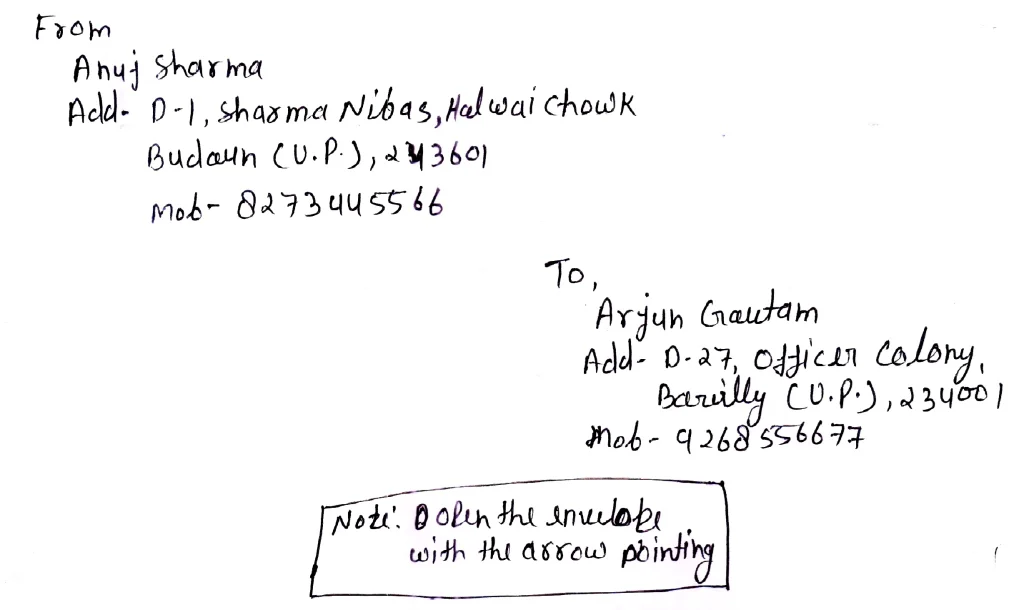 From
Anuj Sharma
Add- D-1, Sharma Nibas, Halwai Chowk
Budaun (U.P.), 243601
Mob- 8273445566
To,
Arjun Gautam
Add- D-27, Officer Colony,
Bareilly (U.P.), 234001
Mob- 9268556677
Note: Open the envelope
with the arrow pointing